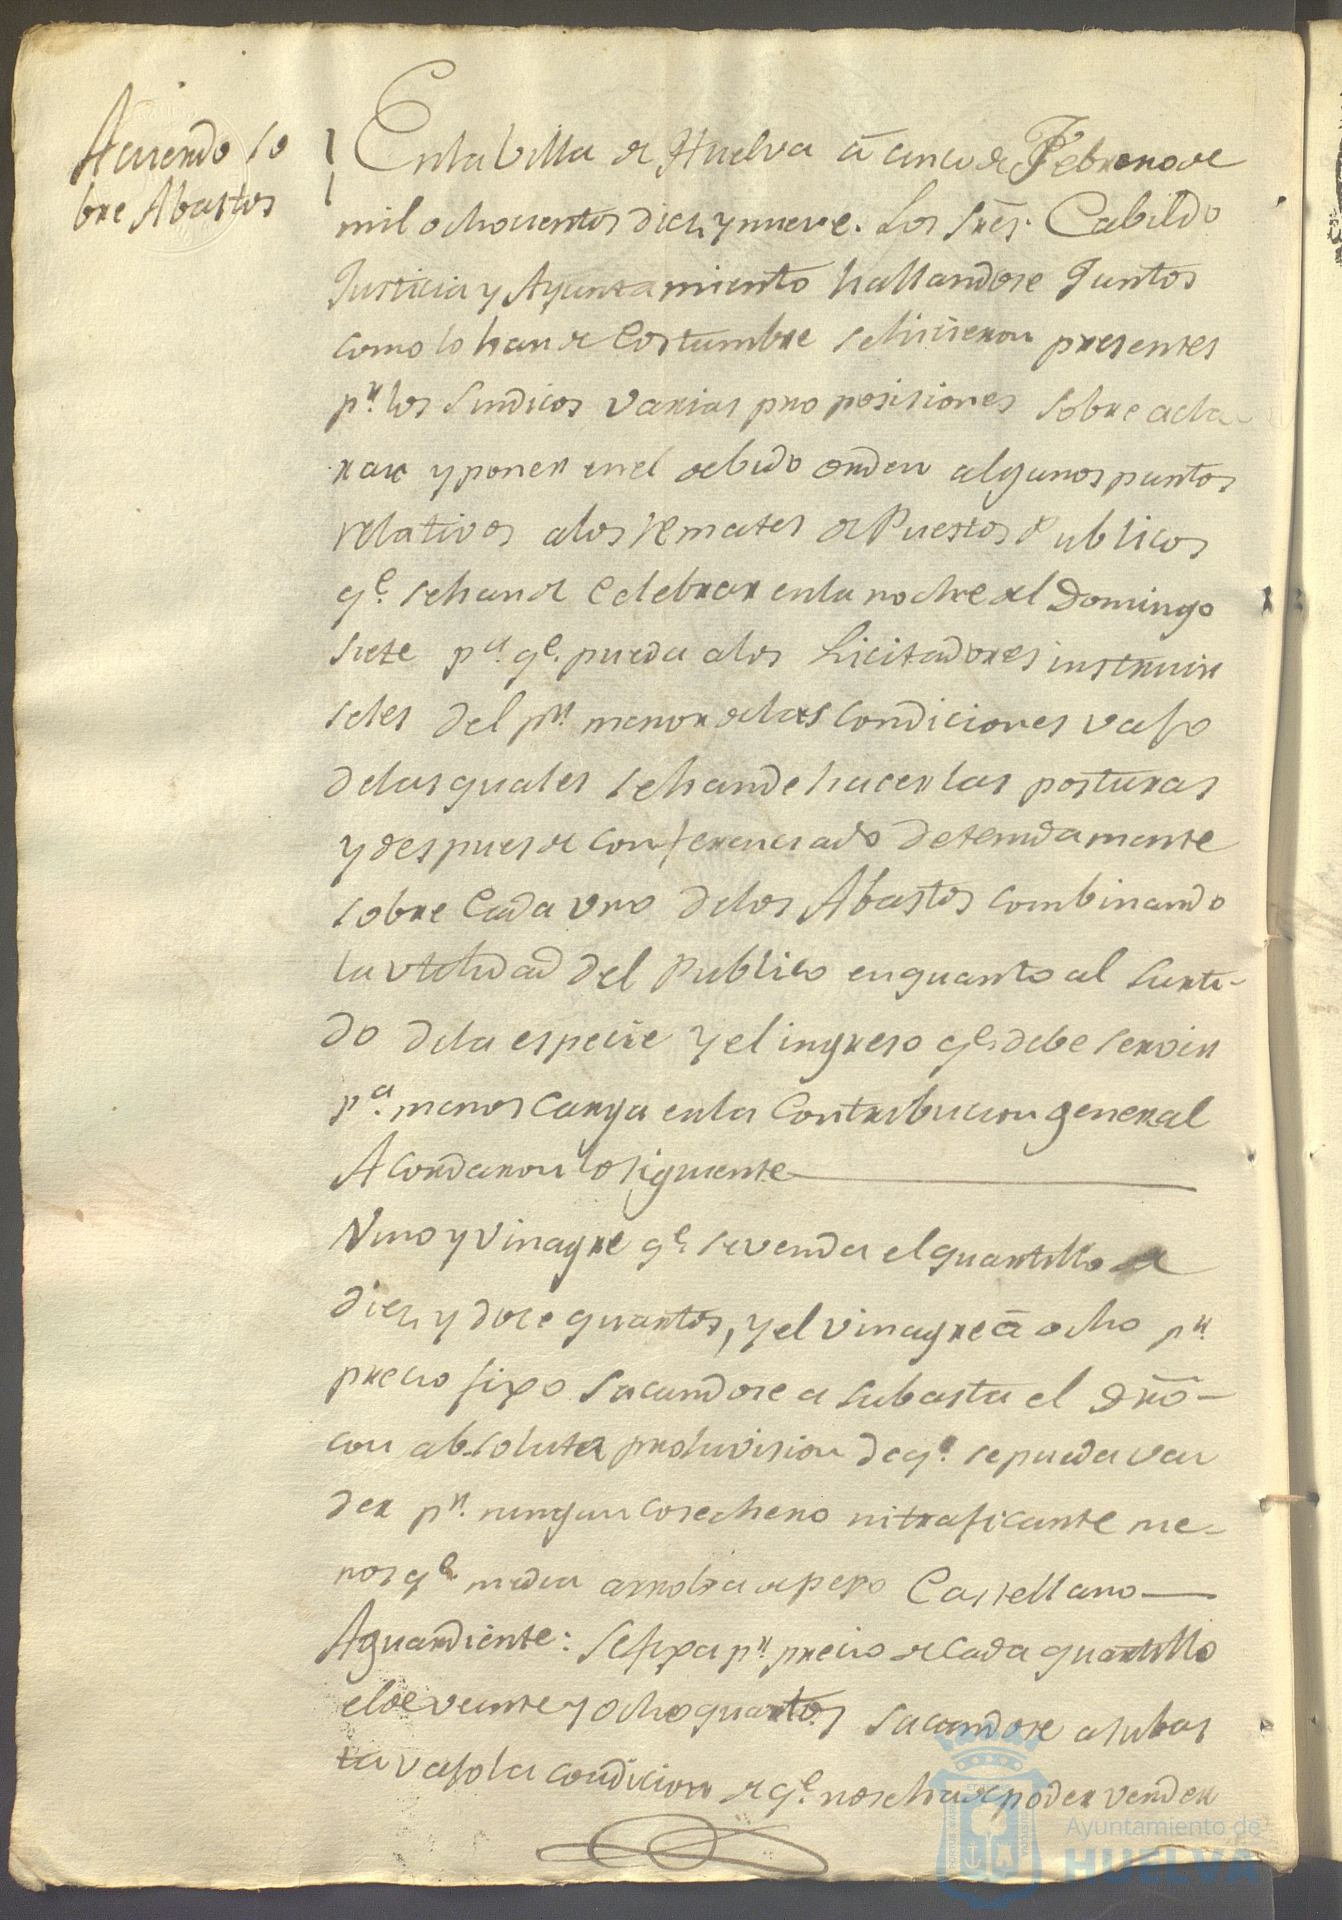 Acuerdo so
bre Abastos
En la Villa de Huelva á cinco de Febrero de
mil ochocientos diez y nueve. Los Sres. Cabildo
Justicia y Ayuntamiento hallandose Juntos
como lo han de Costumbre se hicieron presentes
pr. los Sindicos varias proposisiones sobre acla-
rar y poner en el debido orden algunos puntos
relativos a los remates de Puestos Publicos
qe. se han de Celebrar en la noche del Domingo
siete pa. qe. pueda a los Licitadores instruir
seles del pr. menor de las condiciones vajo
de las quales se han de hacer las posturas
y despues de conferenciado detenidamente
sobre Cada uno de los Abastos combinando
la utilidad del Publico en quanto al surti-
do de la especie y el ingreso qe. debe servir
pa. menos carga en la Contribucion general
Acordaron lo siguiente
Vino y Vinagre qe. se venda el quartillo a
diez y doce quartos, y el vinagre á ocho pr.
precio fixo sacandose a subasta el dro-
con absoluta prohivision de qe. se pueda ven
der pr. ningun cosechero ni traficante me-
nos qe. media arroba de peso Castellano
Aguardiente: se fixa pr. precio de cada quartillo
el de veinte y ocho quartos sacandose a subas
ta vajo la condicion de qe. no se ha de poder vender
Ayuntamiento de
HUELVA